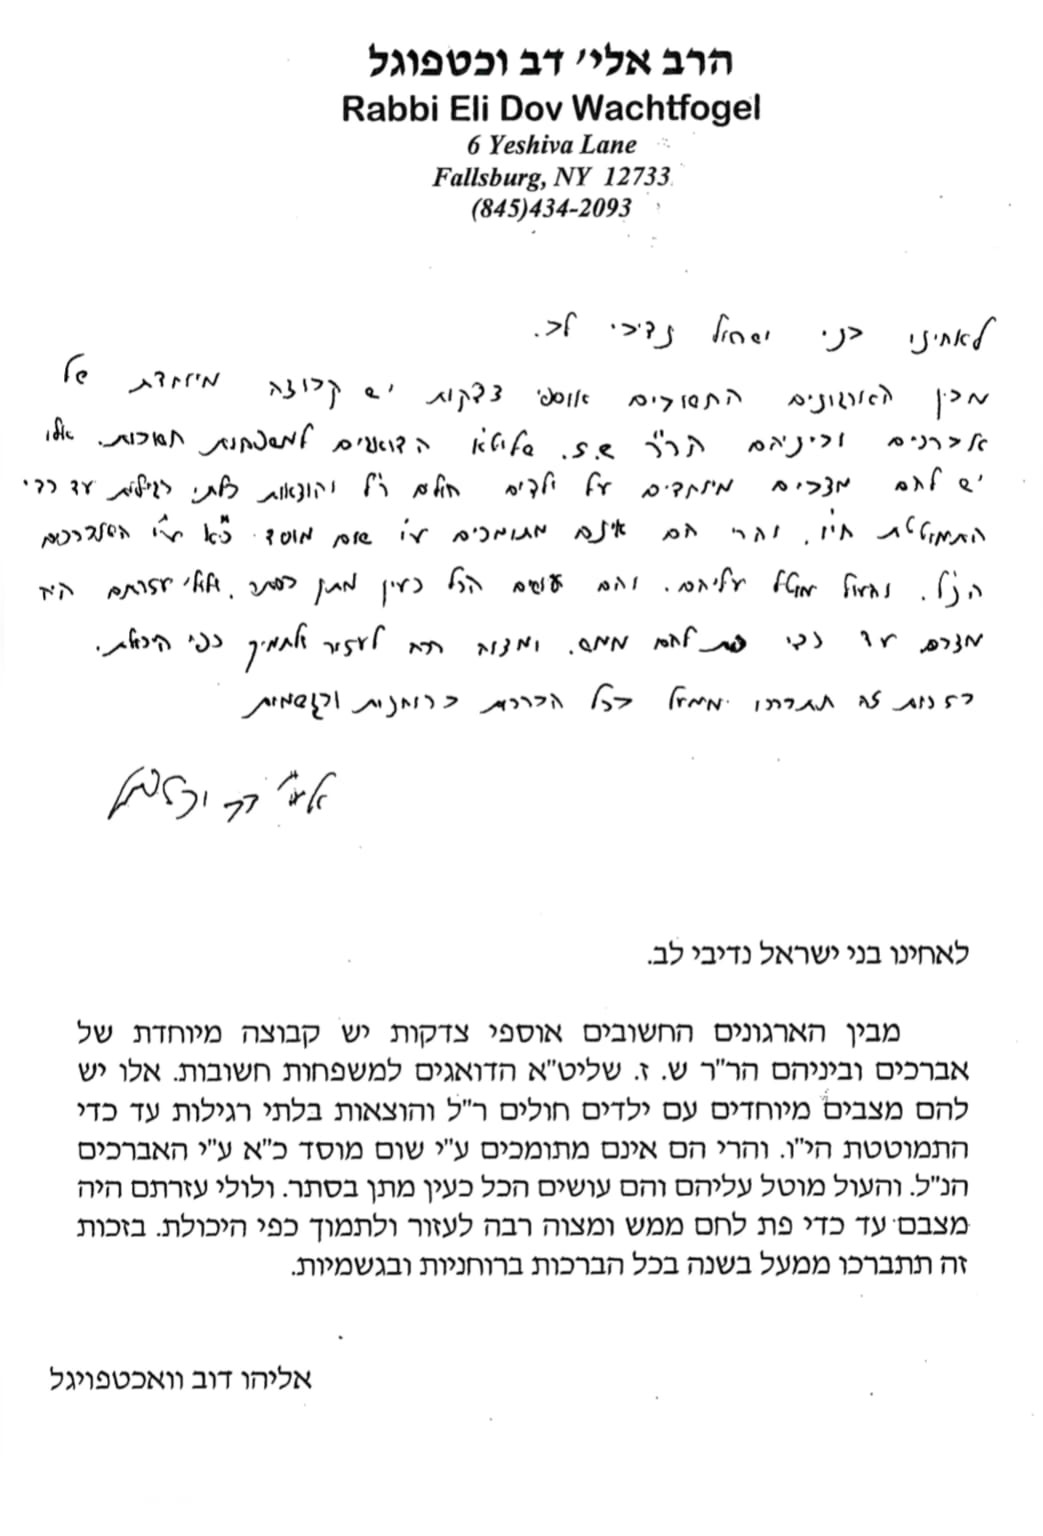 הרב אלי׳ דב וכטפוגל
Rabbi Eli Dov Wachtfogel
6 Yeshiva Lane
Fallsburg, NY 12733
(845)434-2093
לאחינו בני ישראל נדיבי לב.
מבין הארגונים החשובים אוספי צדקות יש קבוצה מיוחדת של
אברכים וביניהם הר"ר ש. ז. שליט"א הדואגים למשפחות חשובות. אלו
יש להם מצבים מיוחדים על ילדים חולים ר"ל והוצאות בלתי רגילות עד כדי
התמוטטת הי"ו. והרי הם אינם מתומכים ע"י שום מוסד כ"א ע"י האברכים
הנ"ל. והעול מוטל עליהם. והם עושים הכל כעין מתן בסתר. ולולי עזרתם היה
מצבם עד כדי פת לחם ממש. ומצוה רבה לעזור ולתמוך כפי היכולת.
בזכות זה תתברכו ממעל בכל הברכות ברוחניות ובגשמיות
אלי' דב וכטפוגל
לאחינו בני ישראל נדיבי לב.
מבין הארגונים החשובים אוספי צדקות יש קבוצה מיוחדת של
אברכים וביניהם הר"ר ש. ז. שליט"א הדואגים למשפחות חשובות. אלו יש
להם מצבים מיוחדים עם ילדים חולים ר"ל והוצאות בלתי רגילות עד כדי
התמוטטת הי"ו. והרי הם אינם מתומכים ע"י שום מוסד כ"א ע"י האברכים
הנ"ל. והעול מוטל עליהם והם עושים הכל כעין מתן בסתר. ולולי עזרתם היה
מצבם עד כדי פת לחם ממש ומצוה רבה לעזור ולתמוך כפי היכולת. בזכות
זה תתברכו ממעל בשנה בכל הברכות ברוחניות ובגשמיות.
אליהו דוב וואכטפויגל